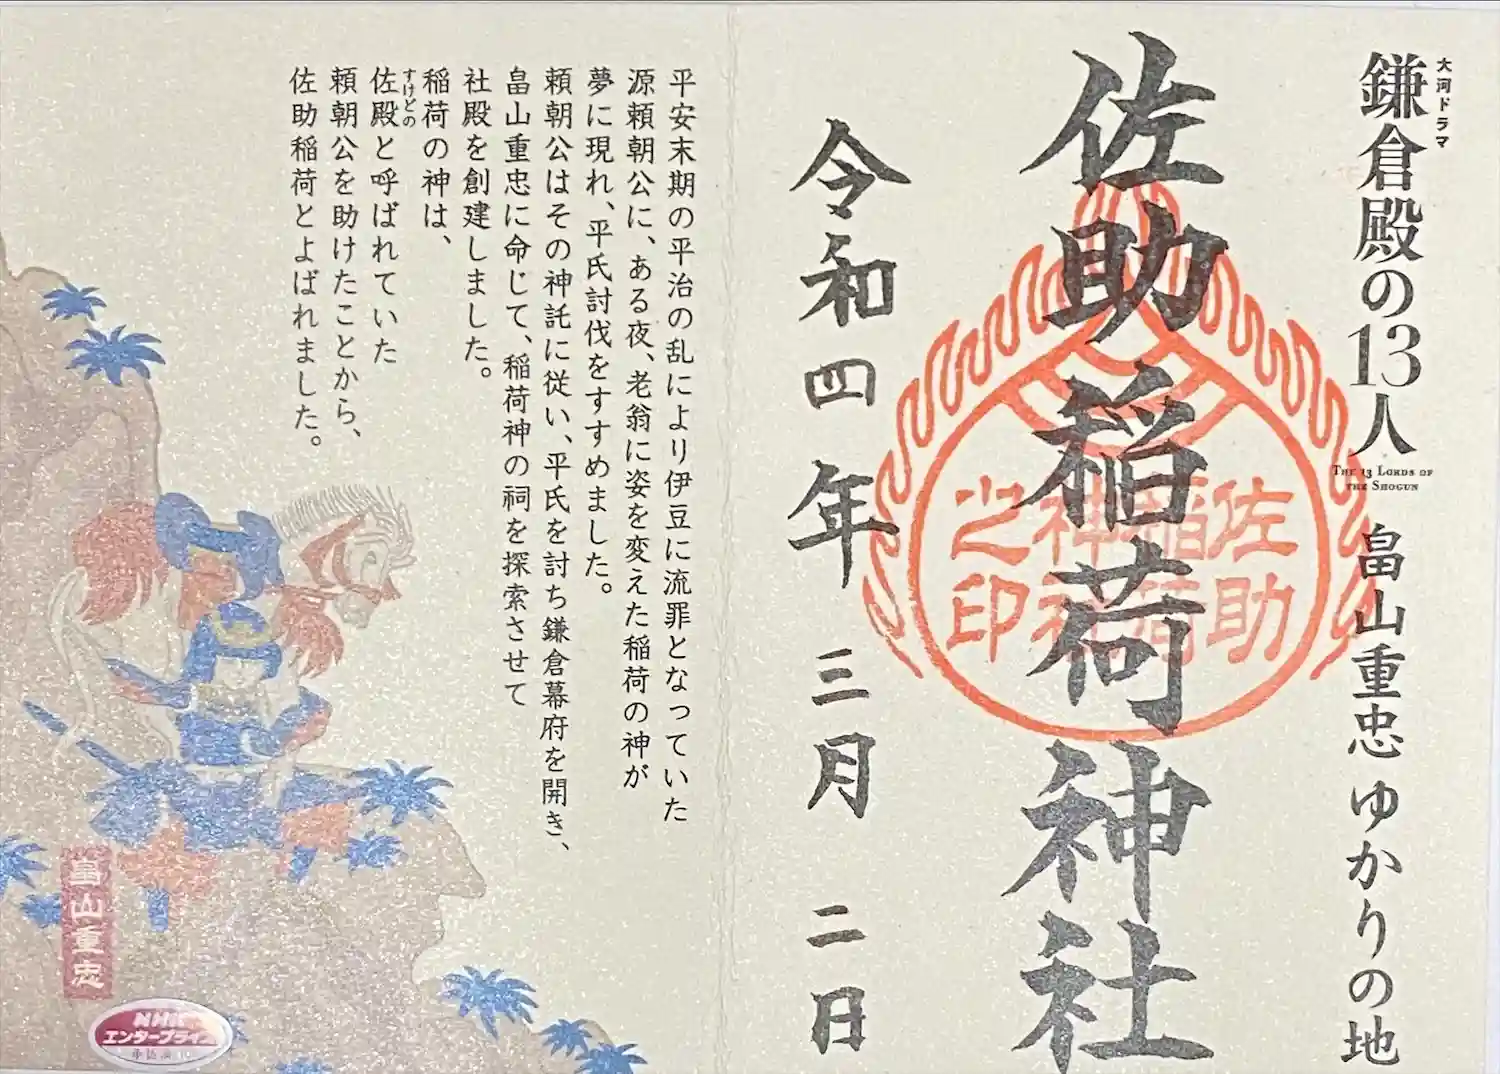 大河ドラマ
鎌倉殿の13人
THE 13 LORDS OF
THE SHOGUN
畠山重忠 ゆかりの地
佐助稲荷神社
佐助
稲荷
神社
之印
令和四年 三月 二日
平安末期の平治の乱により伊豆に流罪となっていた
源頼朝公に、ある夜、老翁に姿を変えた稲荷の神が
夢に現れ、平氏討伐をすすめました。
頼朝公はその神託に従い、平氏を討ち鎌倉幕府を開き、
畠山重忠に命じて、稲荷神の祠を探索させて
社殿を創建しました。
稲荷の神は、
すけどの
佐殿と呼ばれていた
頼朝公を助けたことから、
佐助稲荷とよばれました。
畠山重忠
NHK
エンタープライズ